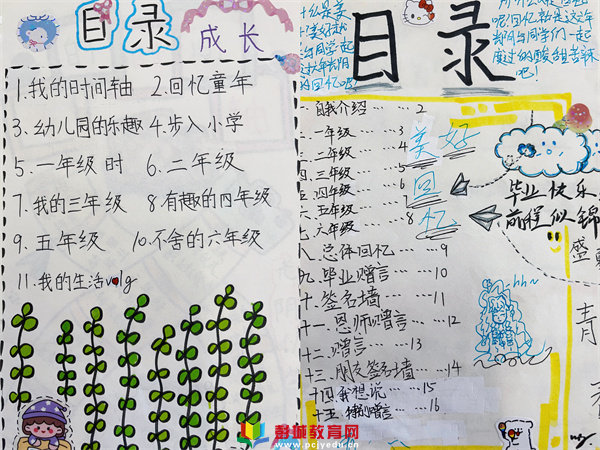 目录
成长
1.我的时间轴 2.回忆童年
3.幼儿园的乐趣 4.步入小学
5.一年级时 6.二年级
7.我的三年级 8.有趣的四年级
9.五年级 10.不舍的六年级
11.我的生活vlog
什么是美
与同学一起
的回忆呢
呢回忆就是这六年
我们与同学们一起
度过的酸甜苦辣
吧!
目录
一自我介绍……2
一年级……3
二年级……4
三年级……5
四年级……6
五年级……7
六年级……8
美好
回
忆
八总体回忆……9
九.毕业赠言…10
十.签名墙……11
十一.恩师赠言…12
十二.赠言……13
十三.朋友签名墙…14
十四我想说……15
十五.特别赠言…16
毕业快乐
前程似锦
盛
青
彭城教育网
www.pcjyedu.cn